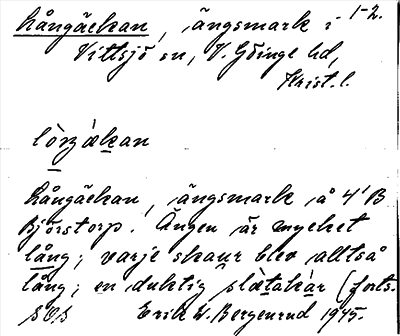 Långäckan, ängsmark i 1-2.
Vittsjö sn, V. Göinge hd,
Krist. l.
lòŋʒækan
Långäckan, ängsmark å 4¹ B
Björstorp. Ängen är mycket
lång; varje skaur blev alltså
lång; en duktig slætakàr (forts.
s. 2.) Erik W. Bergenrud 1945.